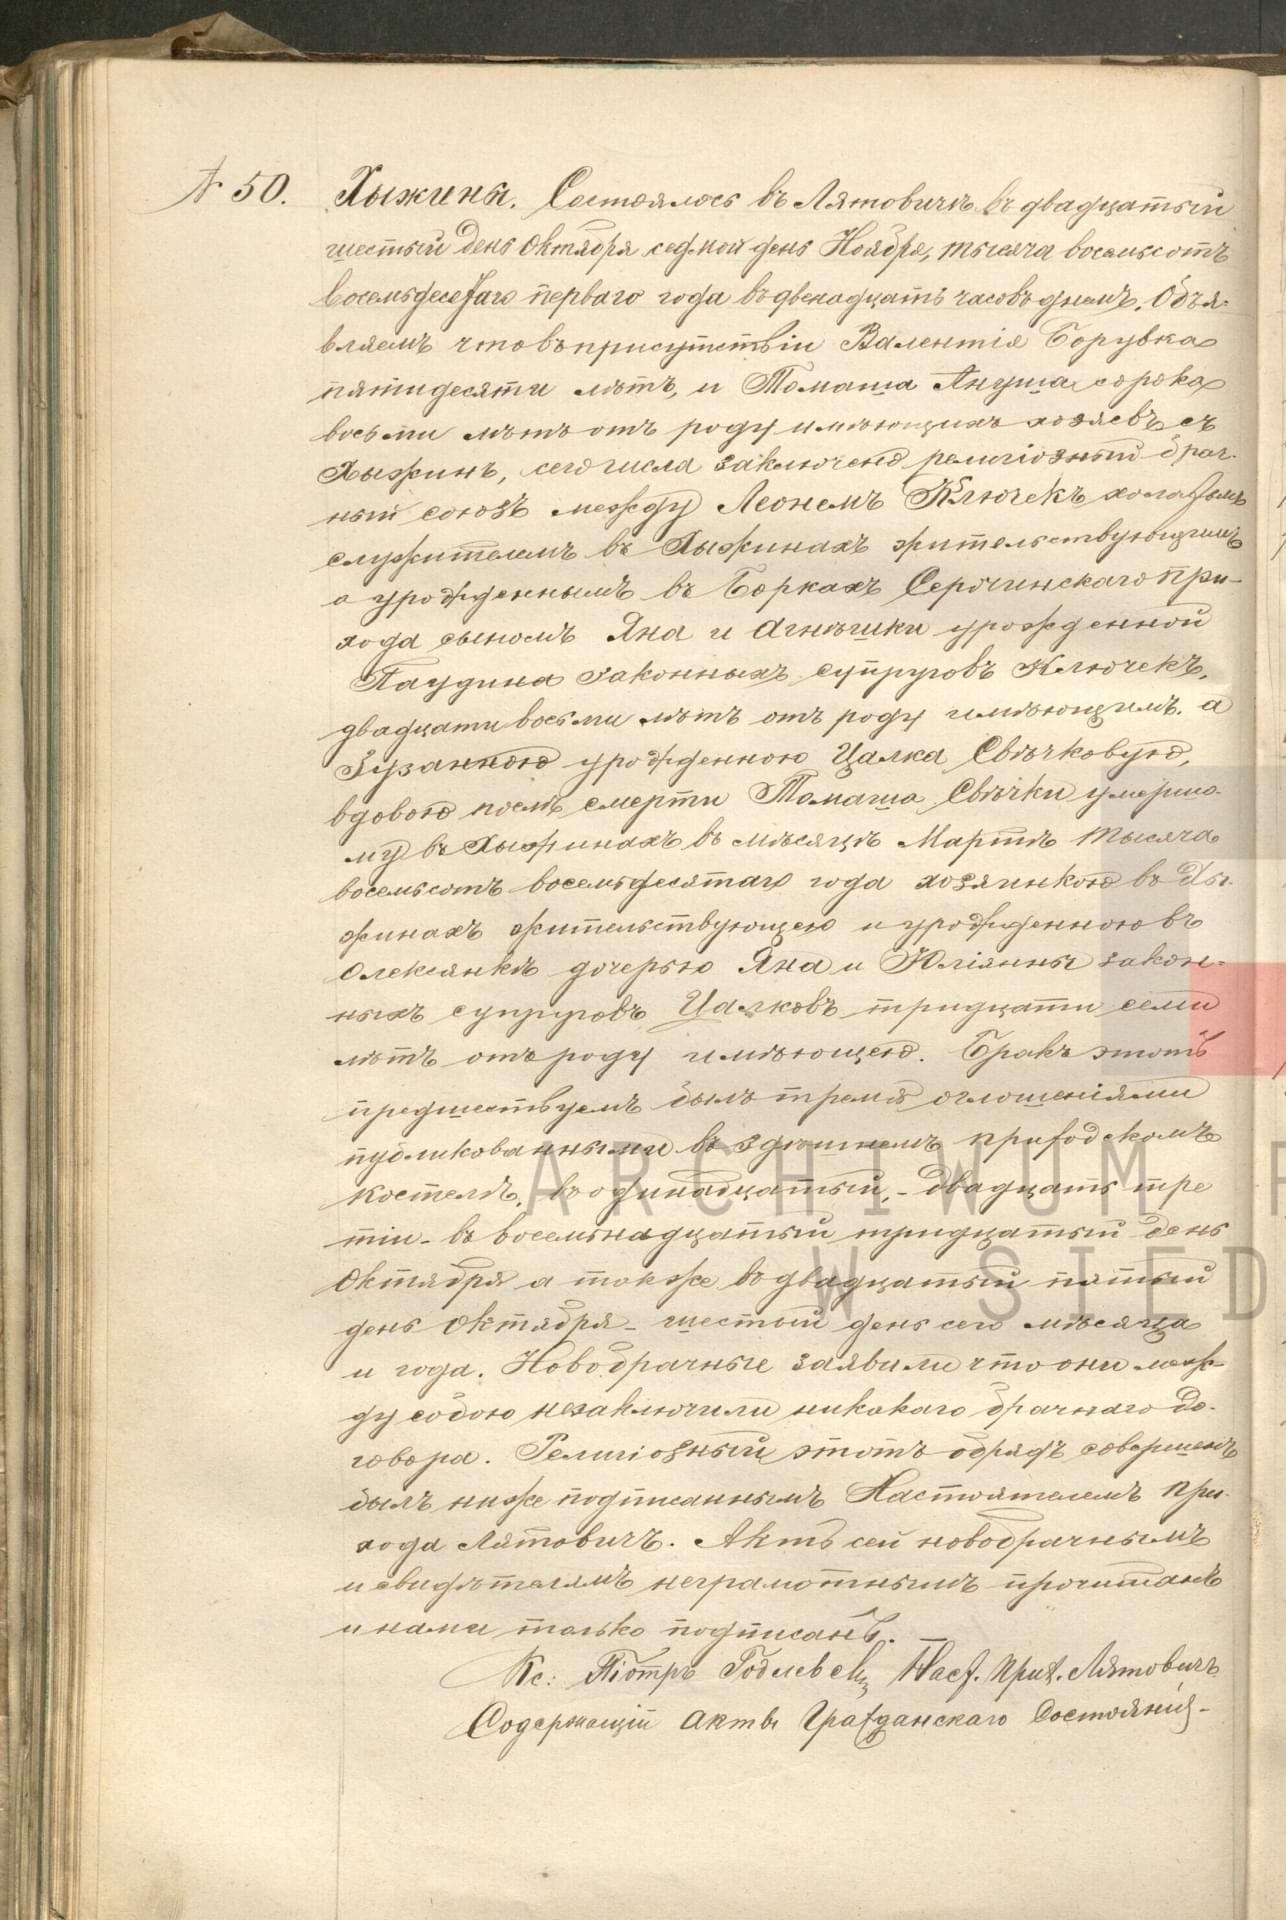 № 50. Хыжины. Состоялось въ Лятовичѣ въ двадцатый
шестый день Октября седмой день Ноября, тысяча восемьсотъ
восемьдесетаго перваго года въ двенадцать часовъ днемъ. Объя-
вляемъ что въ присутствіи Валентія Борувка
пятидесяти лѣтъ, и Томаша Януша сорока
восьми лѣтъ отъ роду имѣющихъ хозяевъ съ
Хыжинъ, сего числа заключено религіозный брач-
ный союзъ между Леонемъ Ключекъ холастымъ
служителемъ въ Хыжинахъ жительствующимъ
а урожденнымъ въ Боркахъ Серочинскаго при-
хода сыномъ Яна и Агнѣшки урожденной
Паудина законныхъ супруговъ Ключекъ,
двадцати восьми лѣтъ отъ роду имѣющимъ. а
Зузанною урожденною Цалка Свѣчковую,
вдовою послѣ смерти Томаша Свѣчки умершо-
му въ Хыжинахъ въ мѣсяцѣ Мартѣ тысяча
восемьсотъ восемьдесятаго года хозяинкою въ Хы-
жинахъ жительствующею и урожденною въ
Олексянкѣ дочерью Яна и Юліянны закон-
ныхъ супруговъ Цалковъ тридцати семи
лѣтъ отъ роду имѣющею. Бракъ этотъ
предшествуемъ былъ тремя оглошеніями
публикованными въ здѣшнемъ приходскомъ
костелѣ, въ одинадцатый, - двадцать тре
тій - въ восемьнадцатый тридцатый день
Октября а также въ двадцатый пятый
день Октября - шестый день сего мѣсяца
и года. Новобрачные заявили что они меж-
ду собою незаключили никакаго брачнаго до-
говора. Религіозный этотъ обрядъ совершенъ
былъ ниже подписаннымъ Настоятелемъ при-
хода Лятовичъ. Актъ сей новобрачнымъ
и свидѣтелямъ неграмотнымъ прочитанъ
и нами только подписанъ.
Кс: Піотръ Наст. Прих. Лятовичъ
Содержащій акты Гражданскаго Состоянія -
ARCHIWUM P
W SIED